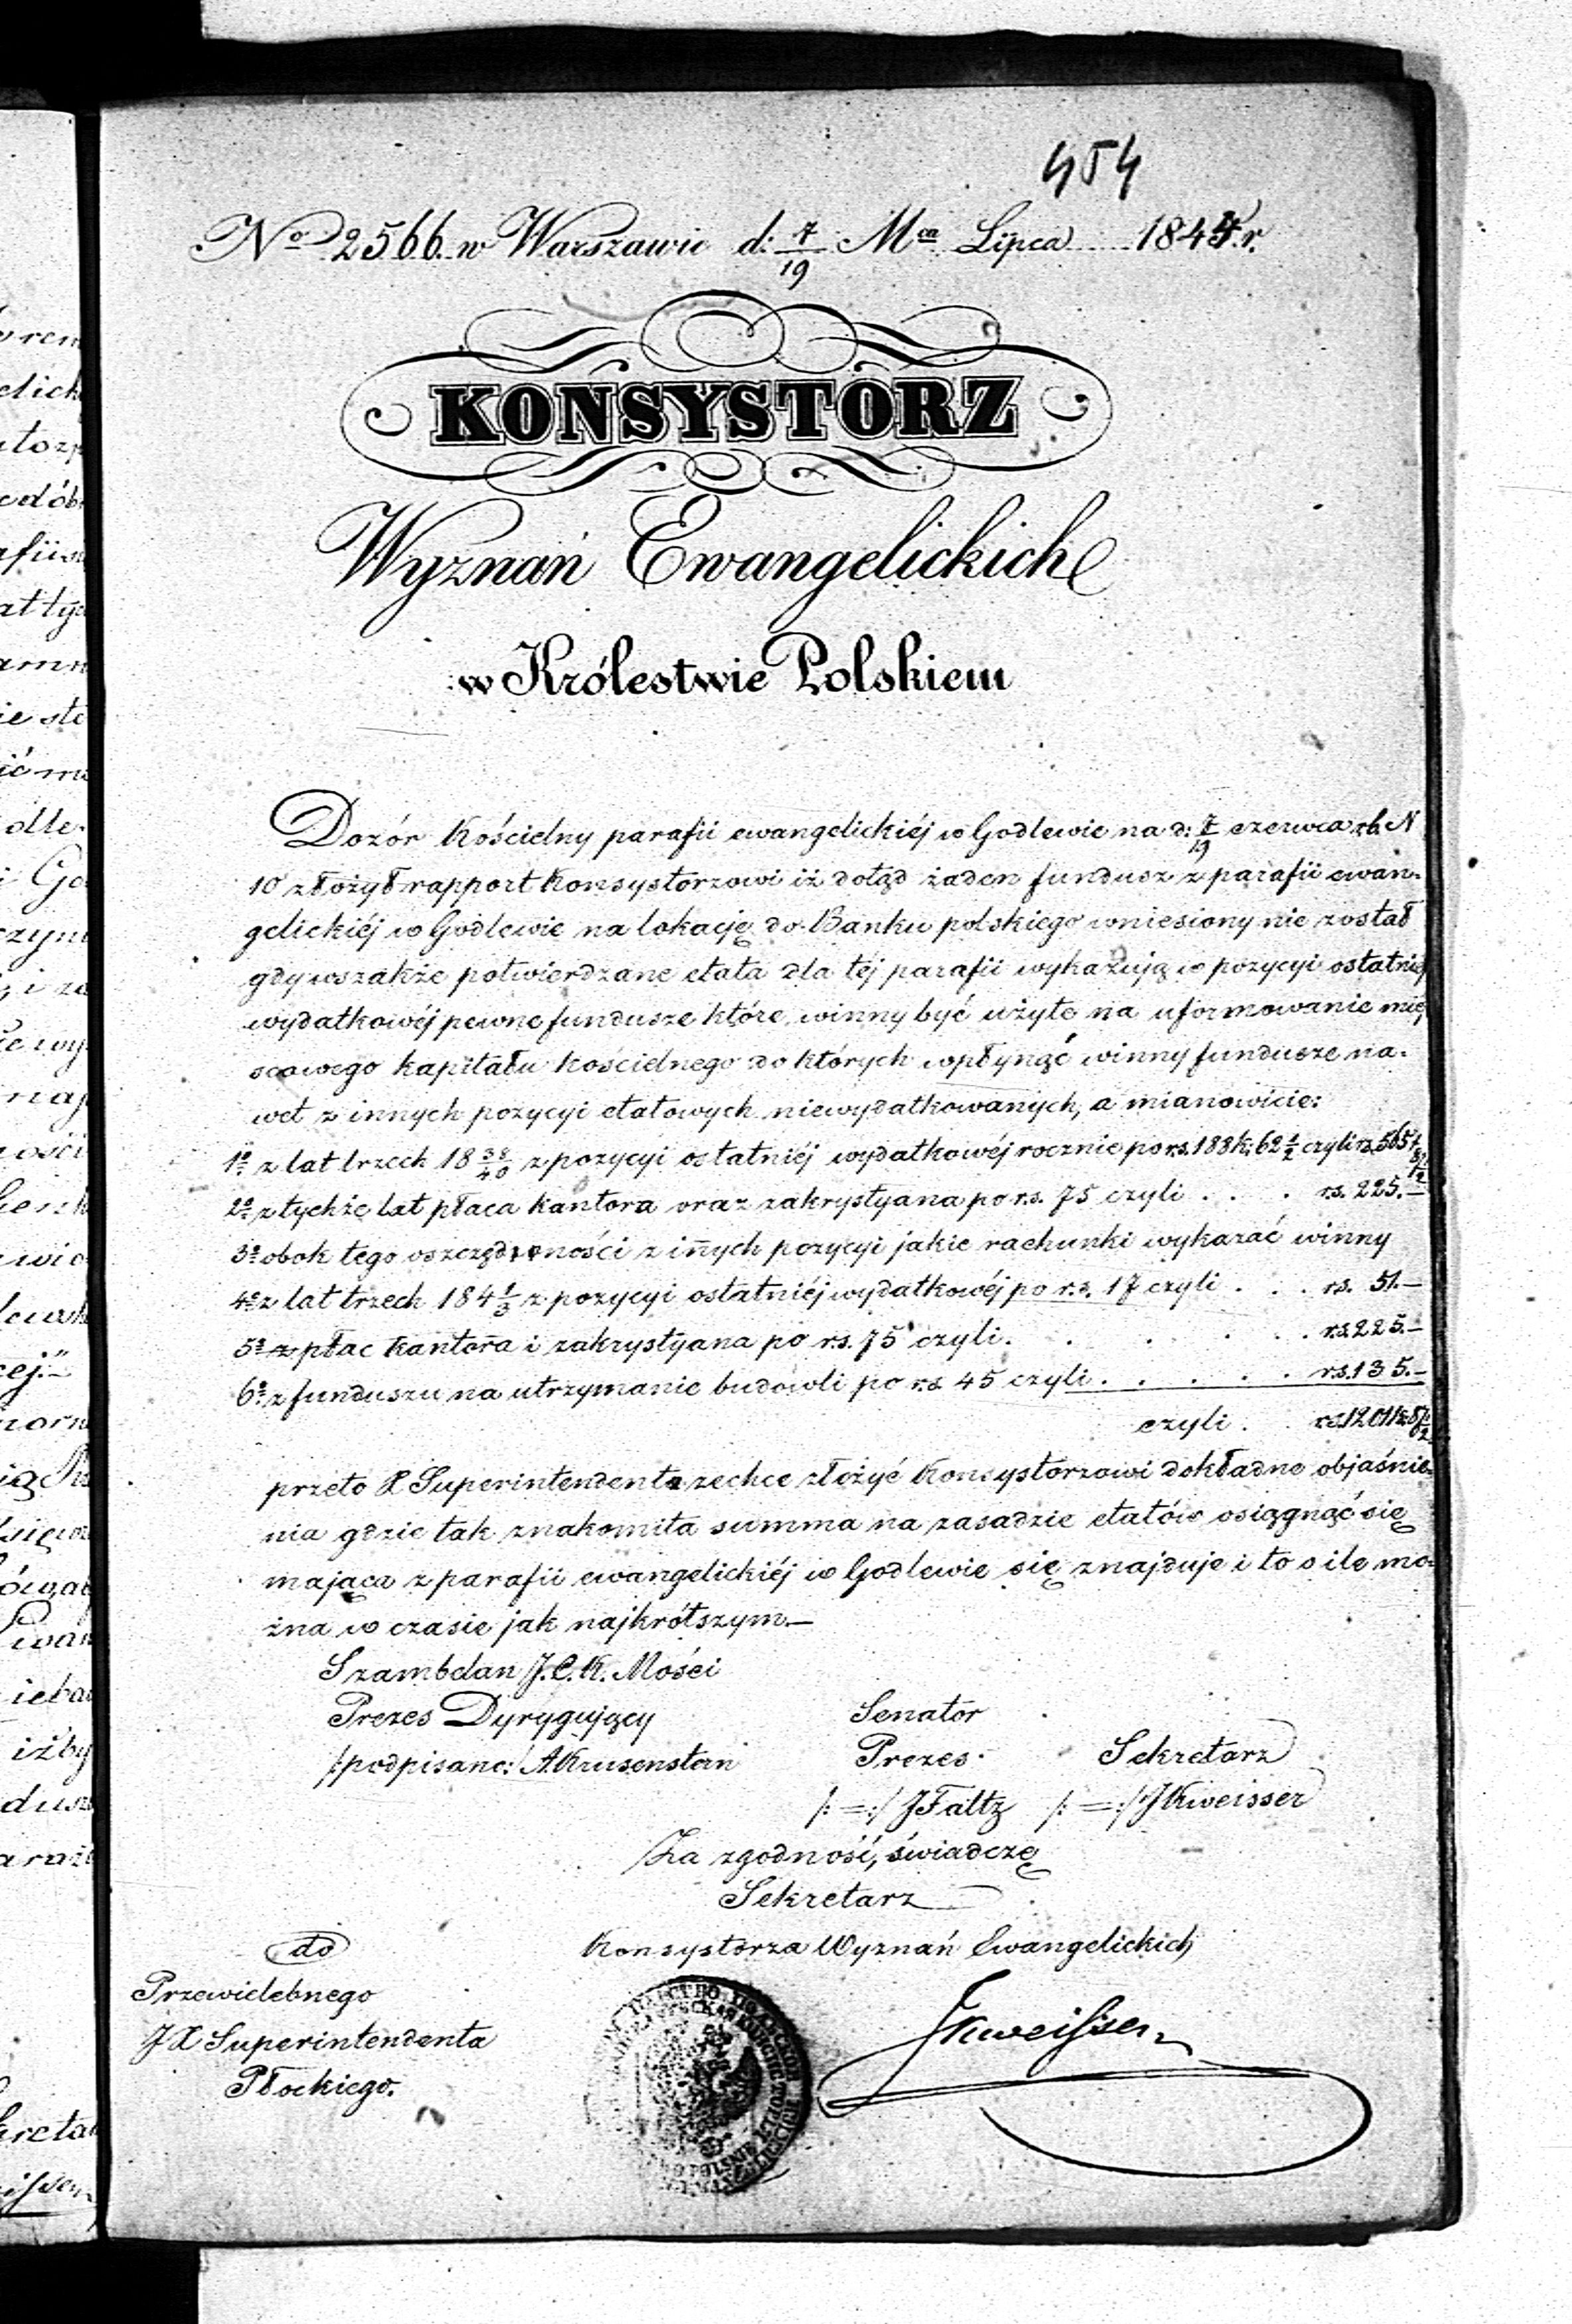 454
No 2566. w Warszawie d: 7/19 Mca Lipca 1844.r.
KONSYSTORZ
Wyznań Ewangelickich
w Królestwie Polskiem
Dozór Kościelny parafii ewangelickiéj w Godlewie na d: 7/19 czerwca rb. N
10 złożył rapport Konsystorzowi iż dotąd żaden fundusz z parafii ewan-
gelickiéj w Godlewie na lokację do Banku polskiego wniesiony nie został
gdy wszakże potwierdzane etata dla téj parafii wykazują w pozycyi ostatniéj
wydatkowéj pewne fundusze które winny być użyte na uformowanie miej
scowego kapitału kościelnego do których wpłynąć winny fundusze na-
wet z innych pozycyi etatowych niewydatkowanych, a mianowicie:
1o z lat trzech 18 38/40 z pozycyi ostatniéj wydatkowéj rocznie po rs. 188 k. 62 1/2 czyli rs. 565 k.
2o z tychże lat płaca kantora oraz zakrystyana po rs. 75 czyli . . . rs. 225.—
3o obok tego oszczędności z inych pozycyi jakie rachunki wykazać winny
4o z lat trzech 184 1/3 z pozycyi ostatniéj wydatkowéj po r.s. 17 czyli . . . rs. 51.—
5o z płac kantora i zakrystyana po rs. 75 czyli . . . . . rs 225.—
6o z funduszu na utrzymanie budowli po rs 45 czyli . . . . . rs. 135.—
czyli . rs. 1201 k. 87 1/2
przeto X Superintendent zechce złożyć Konsystorzowi dokładne objaśnie-
nia gdzie tak znakomita summa na zasadzie etatów osiągnąć się
mająca z parafii ewangelickiéj w Godlewie się znajduje i to o ile mo-
żna w czasie jak najkrótszym.—
Szambelan J.C.K. Mości
Prezes Dyrygujący Senator
/:podpisano:/ A Krusenstern Prezes Sekretarz
/: =:/ J Faltz /: =:/ J Kweisser
Za zgodność, świadczę
Sekretarz
Konsystorza Wyznań Ewangelickich
do
Przewielebnego
JX Superintendenta
Płockiego.
JKweisser